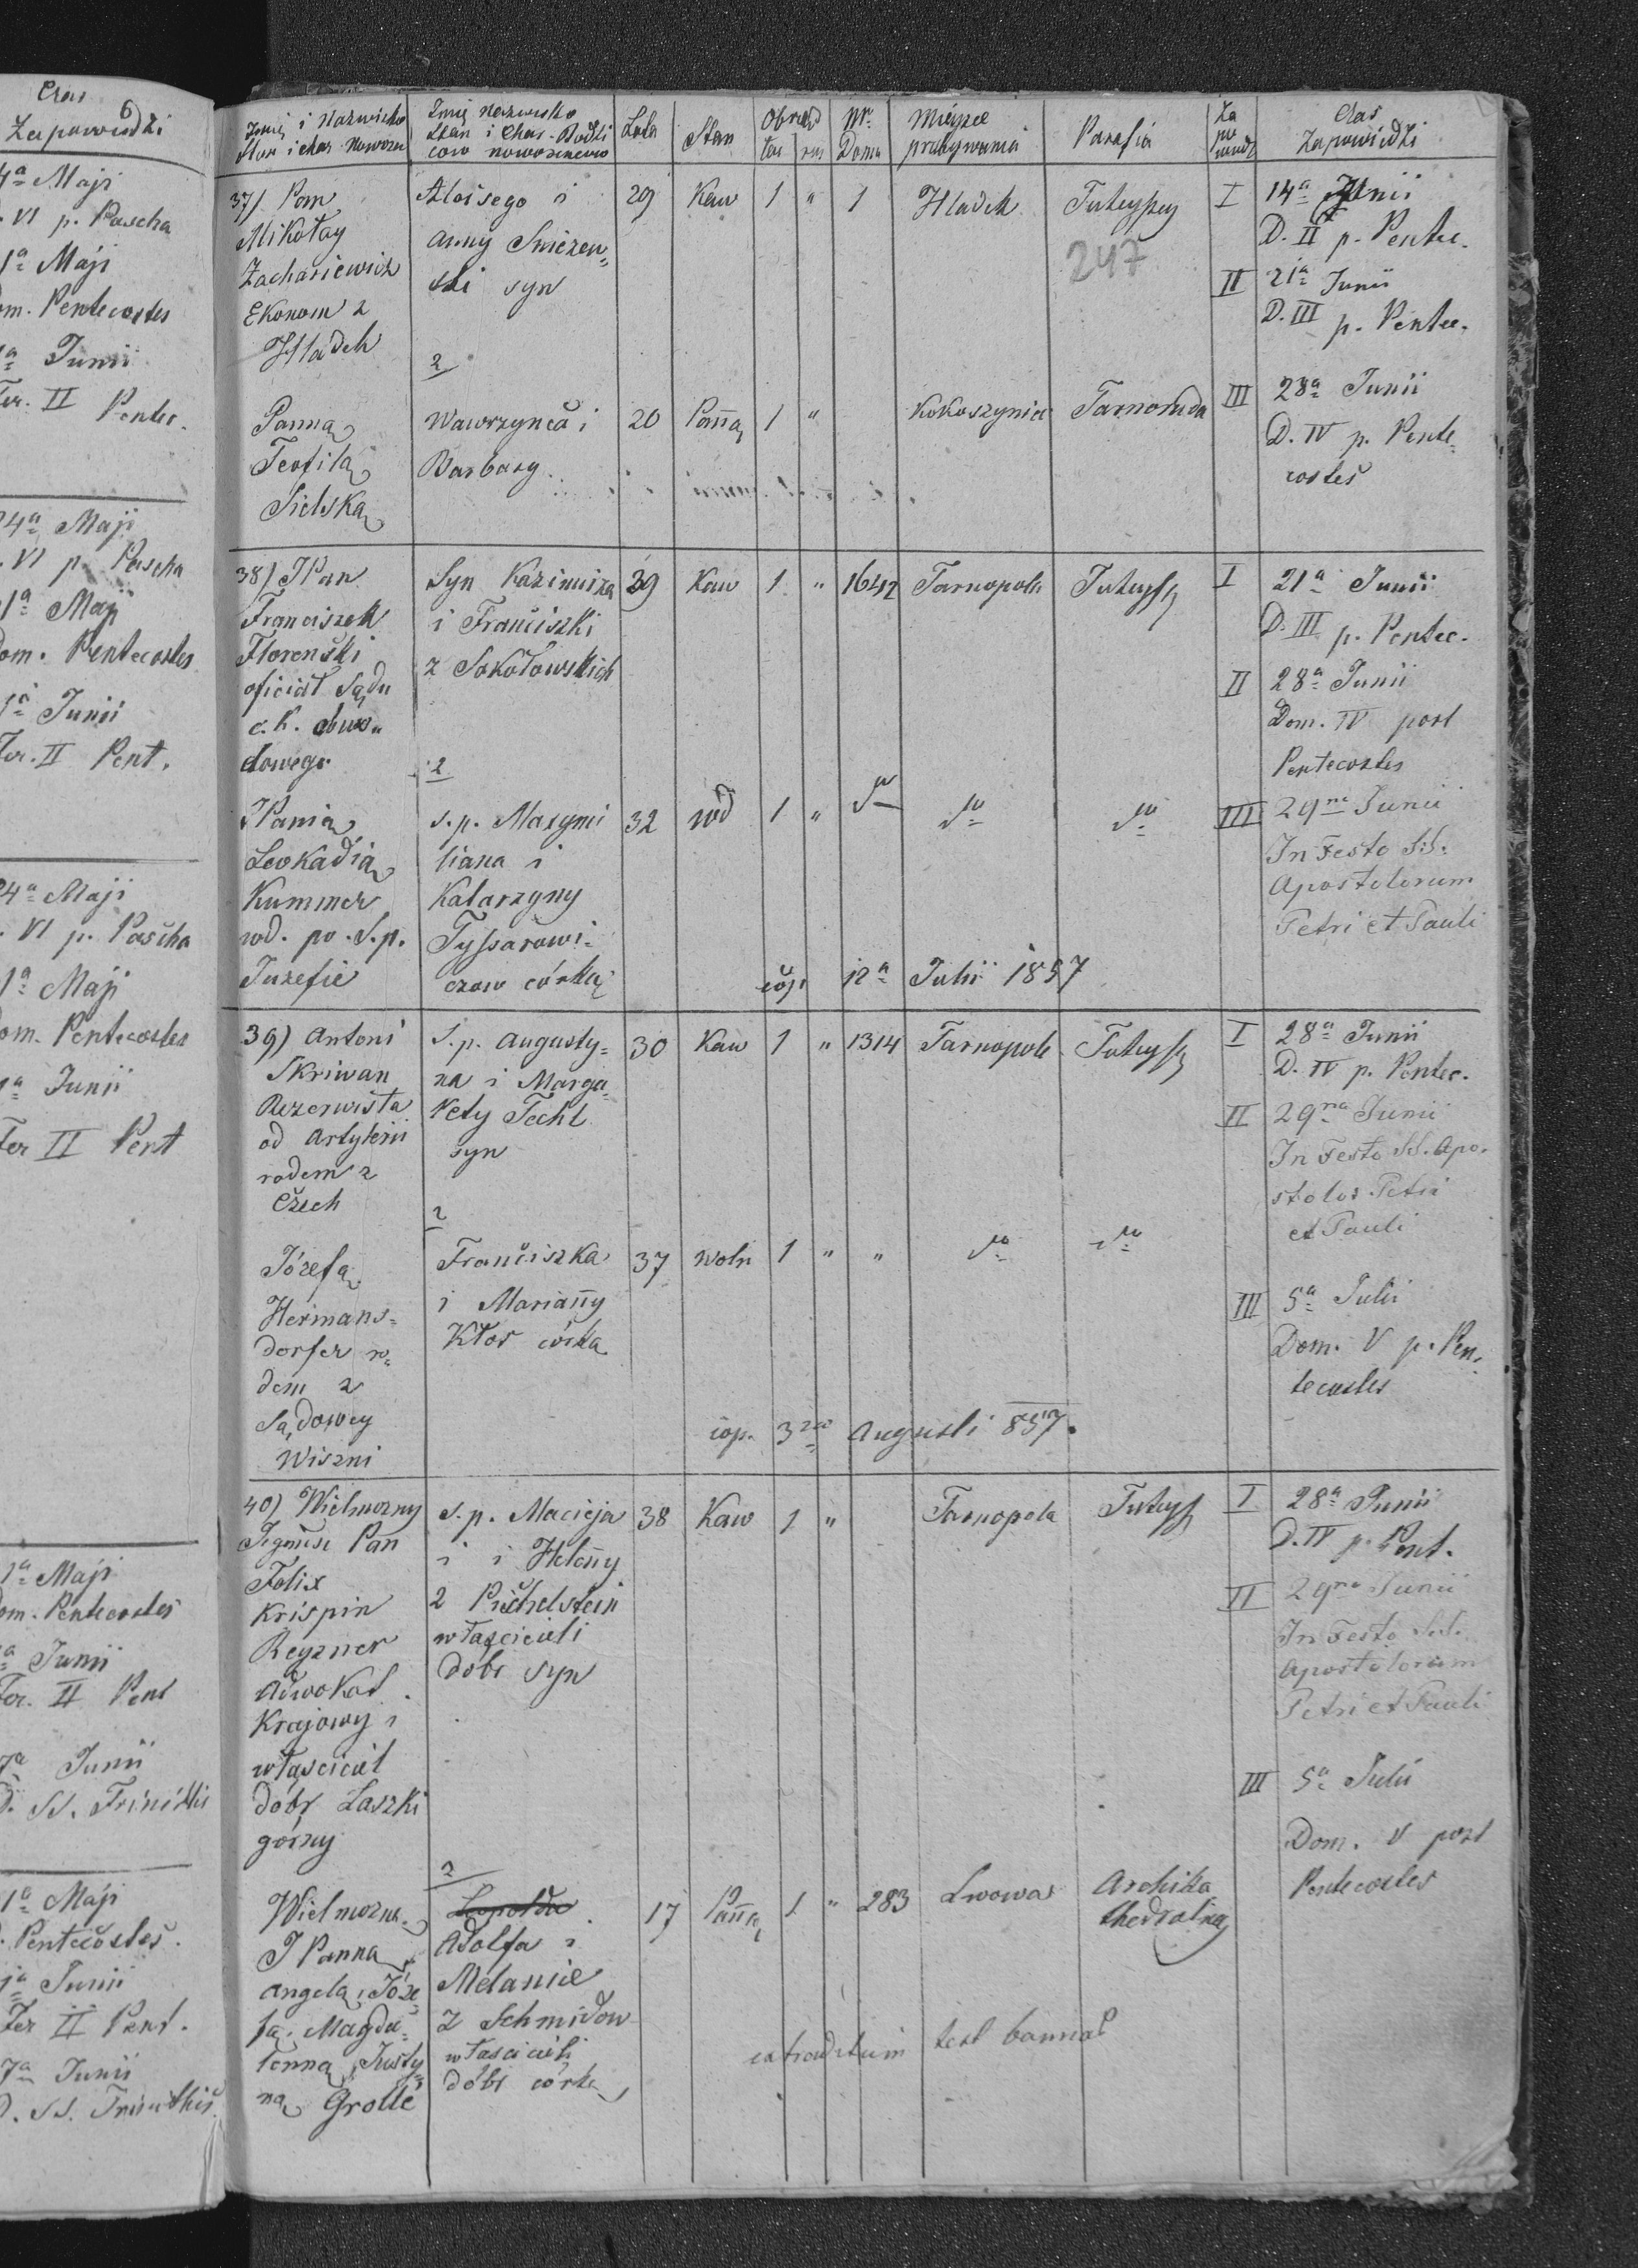 Czas 6
Zapowiedzi
4a Maji
VI p. Pascha
1a Maji
om. Pentecostes
1a Junii
Fer. II Pentec.
24a Maji
VI p. Pascha
1a Maji
Dom. Pentecostes
1a Junii
Fer. II Pent.
24a Maji
VI p. Pascha
1a Maji
om. Pentecostes
1a Junii
Fer II Pent
1a Maji
om. Pentecostes
a Junii
Fer. II Pent
7a Junii
D. SS. Trinitatis
1a Maji
Pentecostes.
1a Junii
Fer II Pent.
7a Junii
D. SS.
Imię i Nazwisko
Stan i char. Nowożeń
Imię Nazwisko
Stan i Char. Rodzi
ców nowożeńców
Lata
Stan
Obrząd
łac rus
Nr.
Domu
Miejsce
przebywania
Parafia
Za
po
wiedź
Czas
Zapowiedzi
37) Pan
Mikołay
Zachariewicz
Ekonom z
Hladek
Aloisego i
Anny Sniezew=
ski syn
29 Kaw 1 " 1 Hladek Tuteyszey
247
I 14a Junii
D. II p. Pentec.
II 21a Junii
D. III p. Pentec.
z
Panną
Teofilą
Sielską
Wawrzyńca i
Barbary
20 Pañą 1 " Kokoszynie Tarnoruda
III 28a Junii
D. IV p. Pente=
costes
38) JPan
Franciszek
Florenski
oficiał Sądu
c. k. obwo=
dowego
Syn Kazimirza
i Franciszki
z Sokołowskich
39 Kaw 1 " 1642 Tarnopola Tuteysz
I 21a Junii
D. III p. Pentec.
II 28a Junii
Dom. IV post
Pentecostes
z
JPanią
Leokadią
Kummer
wd. po S.p.
Juzefie
s.p. Maxymi
liana i
Katarzyny
Tyssarowi=
czow córką
32 wd 1 " do do do
III 29na Junii
In Festo SS.
Apostolorum
Petri et Pauli
cop. 12a Julii 1857
39) Antoni
Skriwan
Rezerwista
od Artylerii
rodem z
Czech
S.p. Augusty=
na i Marga=
rety Techl
syn
30 Kaw 1 " 1314 Tarnopole Tuteysz
I 28a Junii
D. IV p. Pentec.
II 29na Junii
In Festo SS. Apo.
stolor Petri
et Pauli
z
Józefą
Hermans=
dorfer ro=
dem z
Sądowey
Wiszni
Franciszka
i Mariañy
Kłos córka
37 woln 1 " " do do
III 5a Julii
Dom. V p. Pen=
tecostes
cop. 3tia Augusti 857.
40) Wielmożny
Pan
Felix
Krispin
Reyzner
Adwokat
Krajowy i
właściciel
dóbr Laszki
górny
s.p. Macieja
i i Heleny
z Püchelstein
właścicieli
dóbr syn
38 Kaw 1 " Tarnopola Tuteysz
I 28a Junii
D. IV p. Pent.
II 29na Junii
In Festo SS.
Apostolorum
Petri et Pauli
III 5a Julii
Dom. V post
Pentecostes
z
Wielmożną
J Panną
Angelą Józe
fą Magda=
lenną Justy=
ną Grolle
Leopolda
Adolfa i
Melanie
z Schmidow
właścicieli
dóbr córką
17 Pañą 1 " 283 Lwowa Archika
thedralną
extraditum test bannal